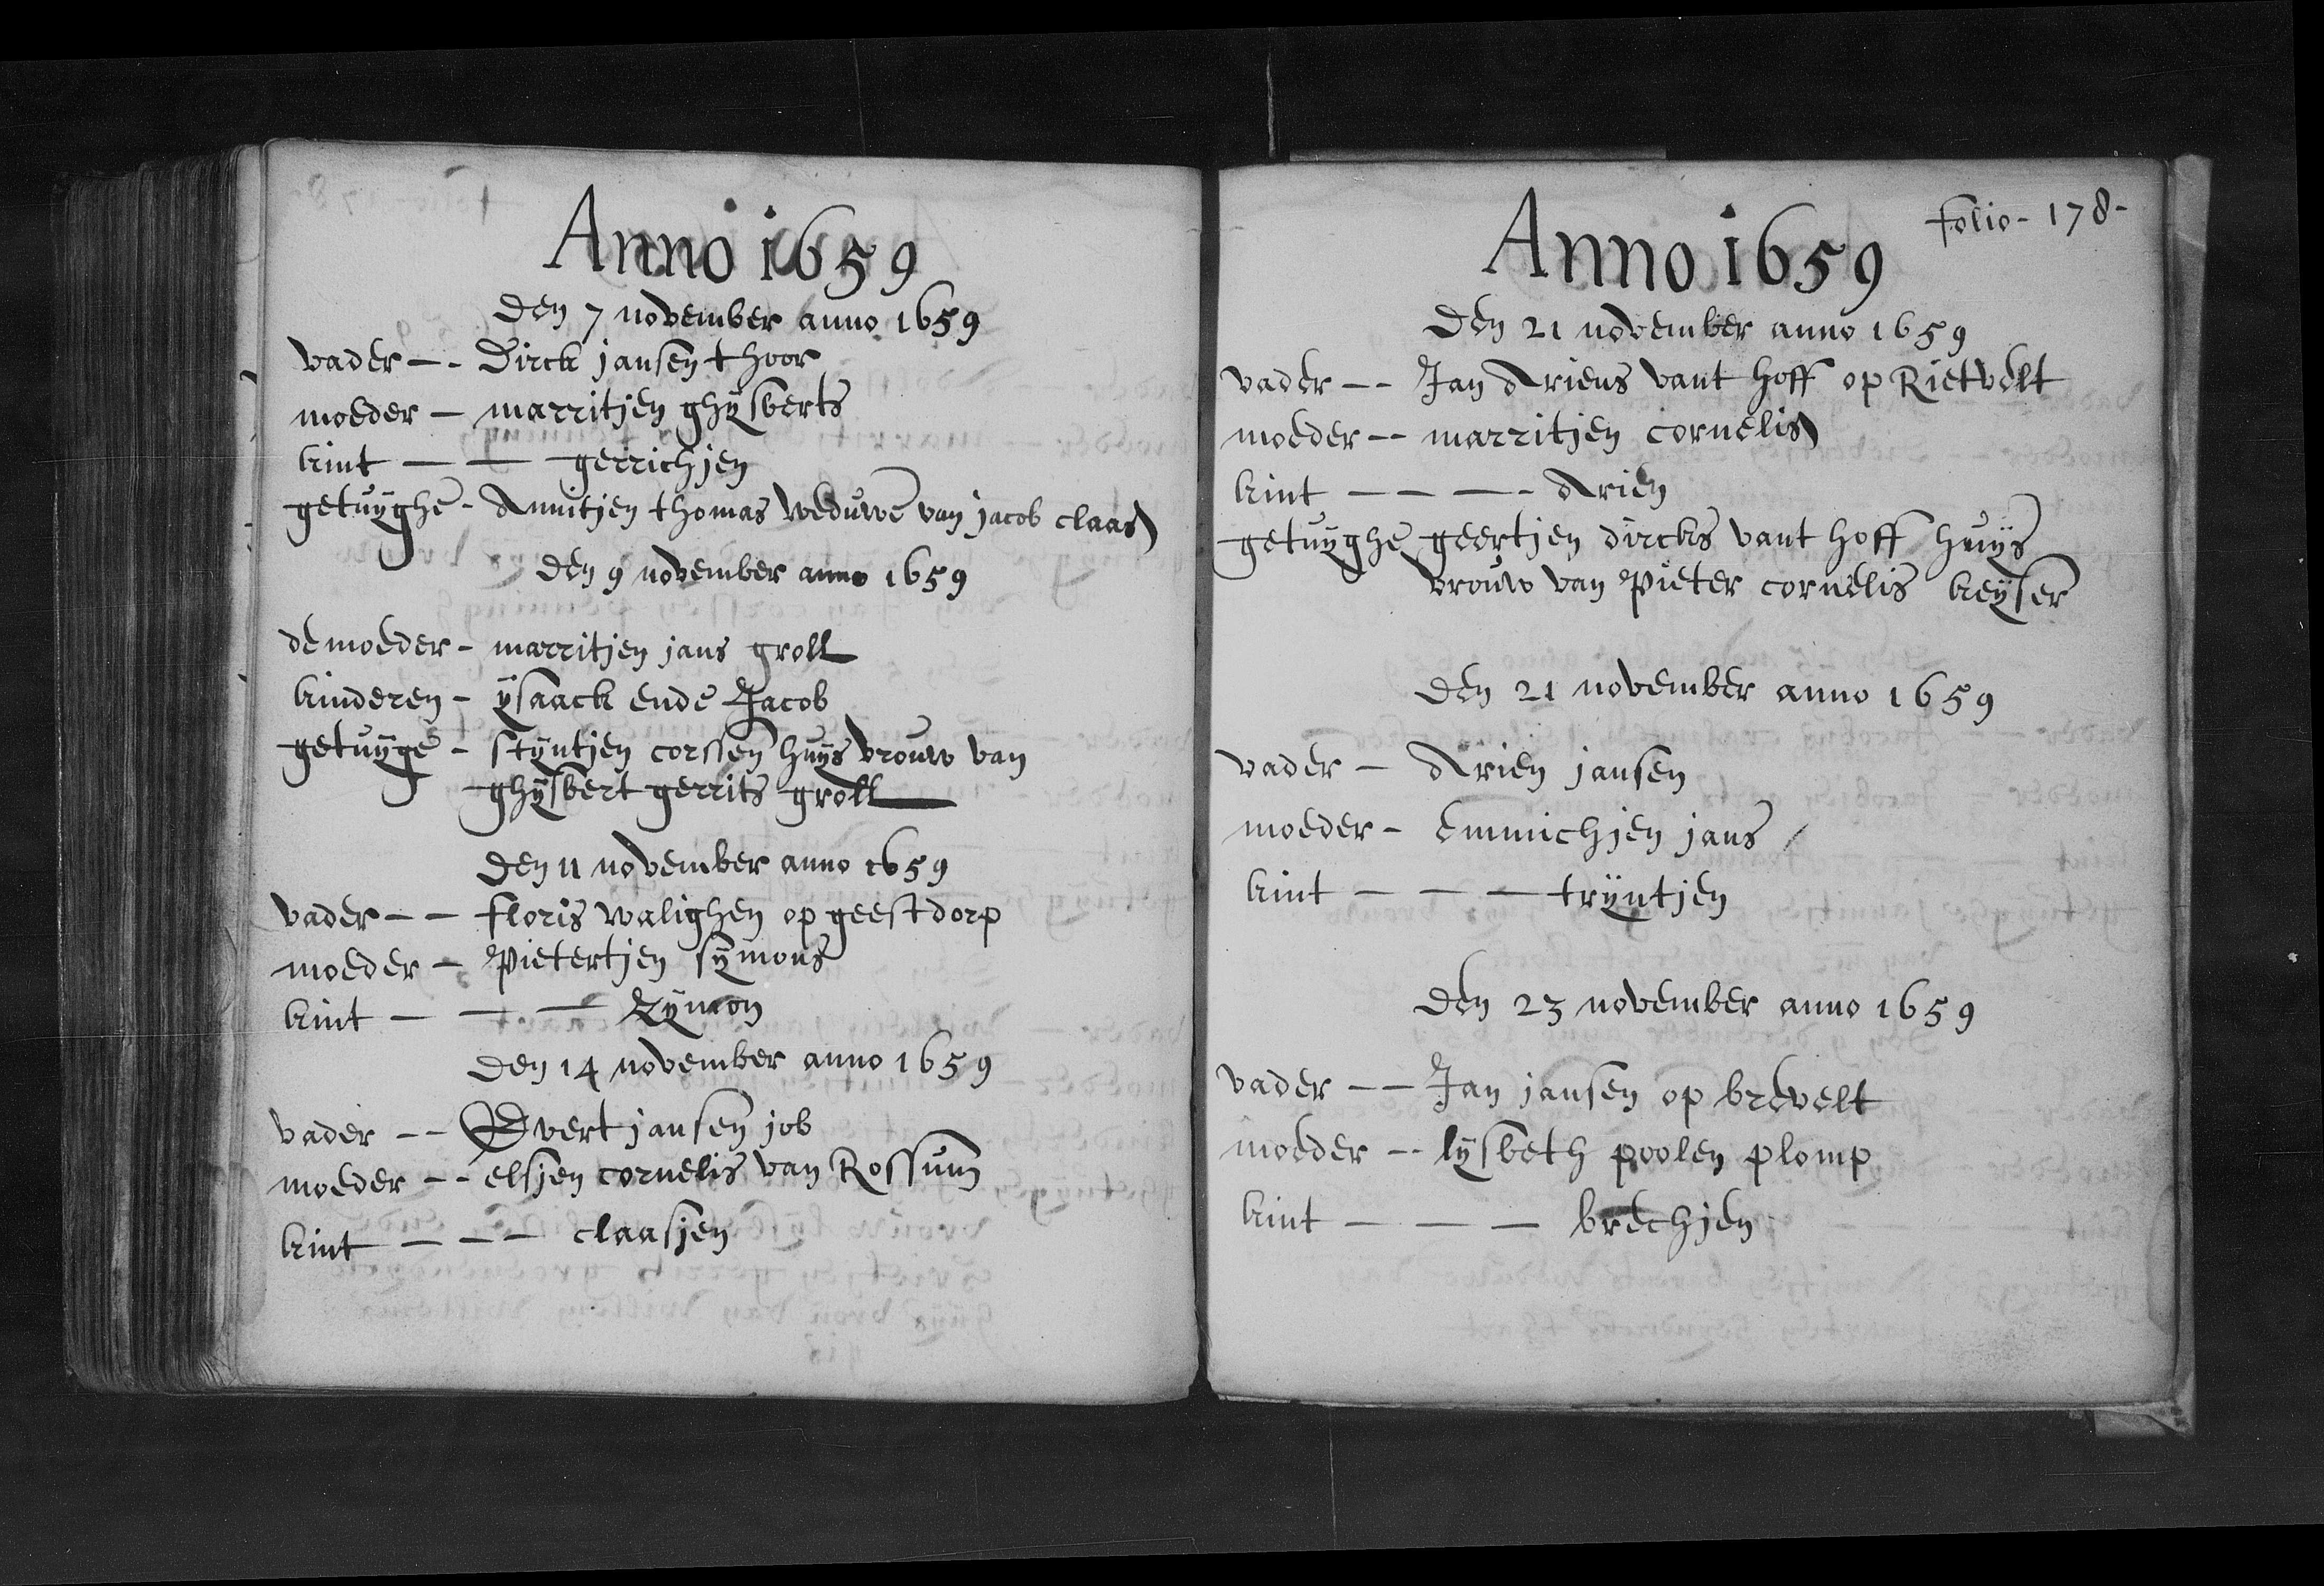 Anno 1659
Den 7 november anno 1659
vader -- Dirck jansen thoor
moeder - marritjen ghijsberts
kint - - gerrichjen
getuijghe - Annitjen thomas weduwe van jacob claas
Den 9 november anno 1659
de moeder - marritjen jans groll
kinderen - ijsaack ende Jacob
getuijge - stijntjen corssen huijs vrouw van
ghijsbert gerrits groll
Den 11 november anno 1659
vader - - floris walighen op geestdorp
moeder - Pietertjen sijmons
kint - - - Zijmon
Den 14 november anno 1659
vader -- Evert jansen job
moeder -- elsjen cornelis van Rossum
kint - - - claasjen
folio - 178 -
Anno 1659
Den 21 november anno 1659
vader -- Jan Ariens vant hoff op Rietvelt
moeder -- marritjen cornelis
kint - - - - Arien
getuijghe geertjen dircks vant hoff huijs
vrouw van Pieter cornelis keijser
Den 21 november anno 1659
vader - Arien jansen
moeder - emmichjen jans
kint - - - trijntjen
Den 23 november anno 1659
vader -- Jan jansen op brevelt
moeder -- lijsbeth poolen plomp
kint - - - brechjen